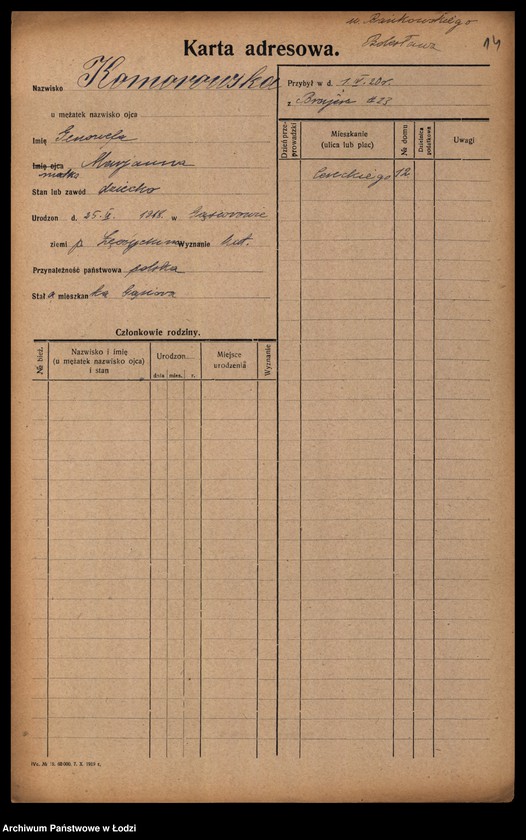 u. Bańkowskiego
Bolesława
14
Karta adresowa.
Nazwisko Komorowska
u mężatek nazwisko ojca
Imię Genowefa
Imię ojca Maryanna
matka
Stan lub zawód dziecko
Urodzon d. 25. 1918. w
ziemi p. Wyznanie kat.
Przynależność państwowa polska
Stał a mieszkan ka
Przybył w d. 1. V. 20 r.
z #23
Dzień przeprowadzki
Mieszkanie (ulica lub plac)
№ domu
Dzielnica podatkowa
Uwagi
12
Członkowie rodziny.
№ bież.
Nazwisko i imię
(u mężatek nazwisko ojca)
i stan
Urodzon....
dnia mies. r.
Miejsce urodzenia
Wyznanie
IVa. № 10. 60 000. 7. 3. 1920 r.
Archiwum Państwowe w Łodzi